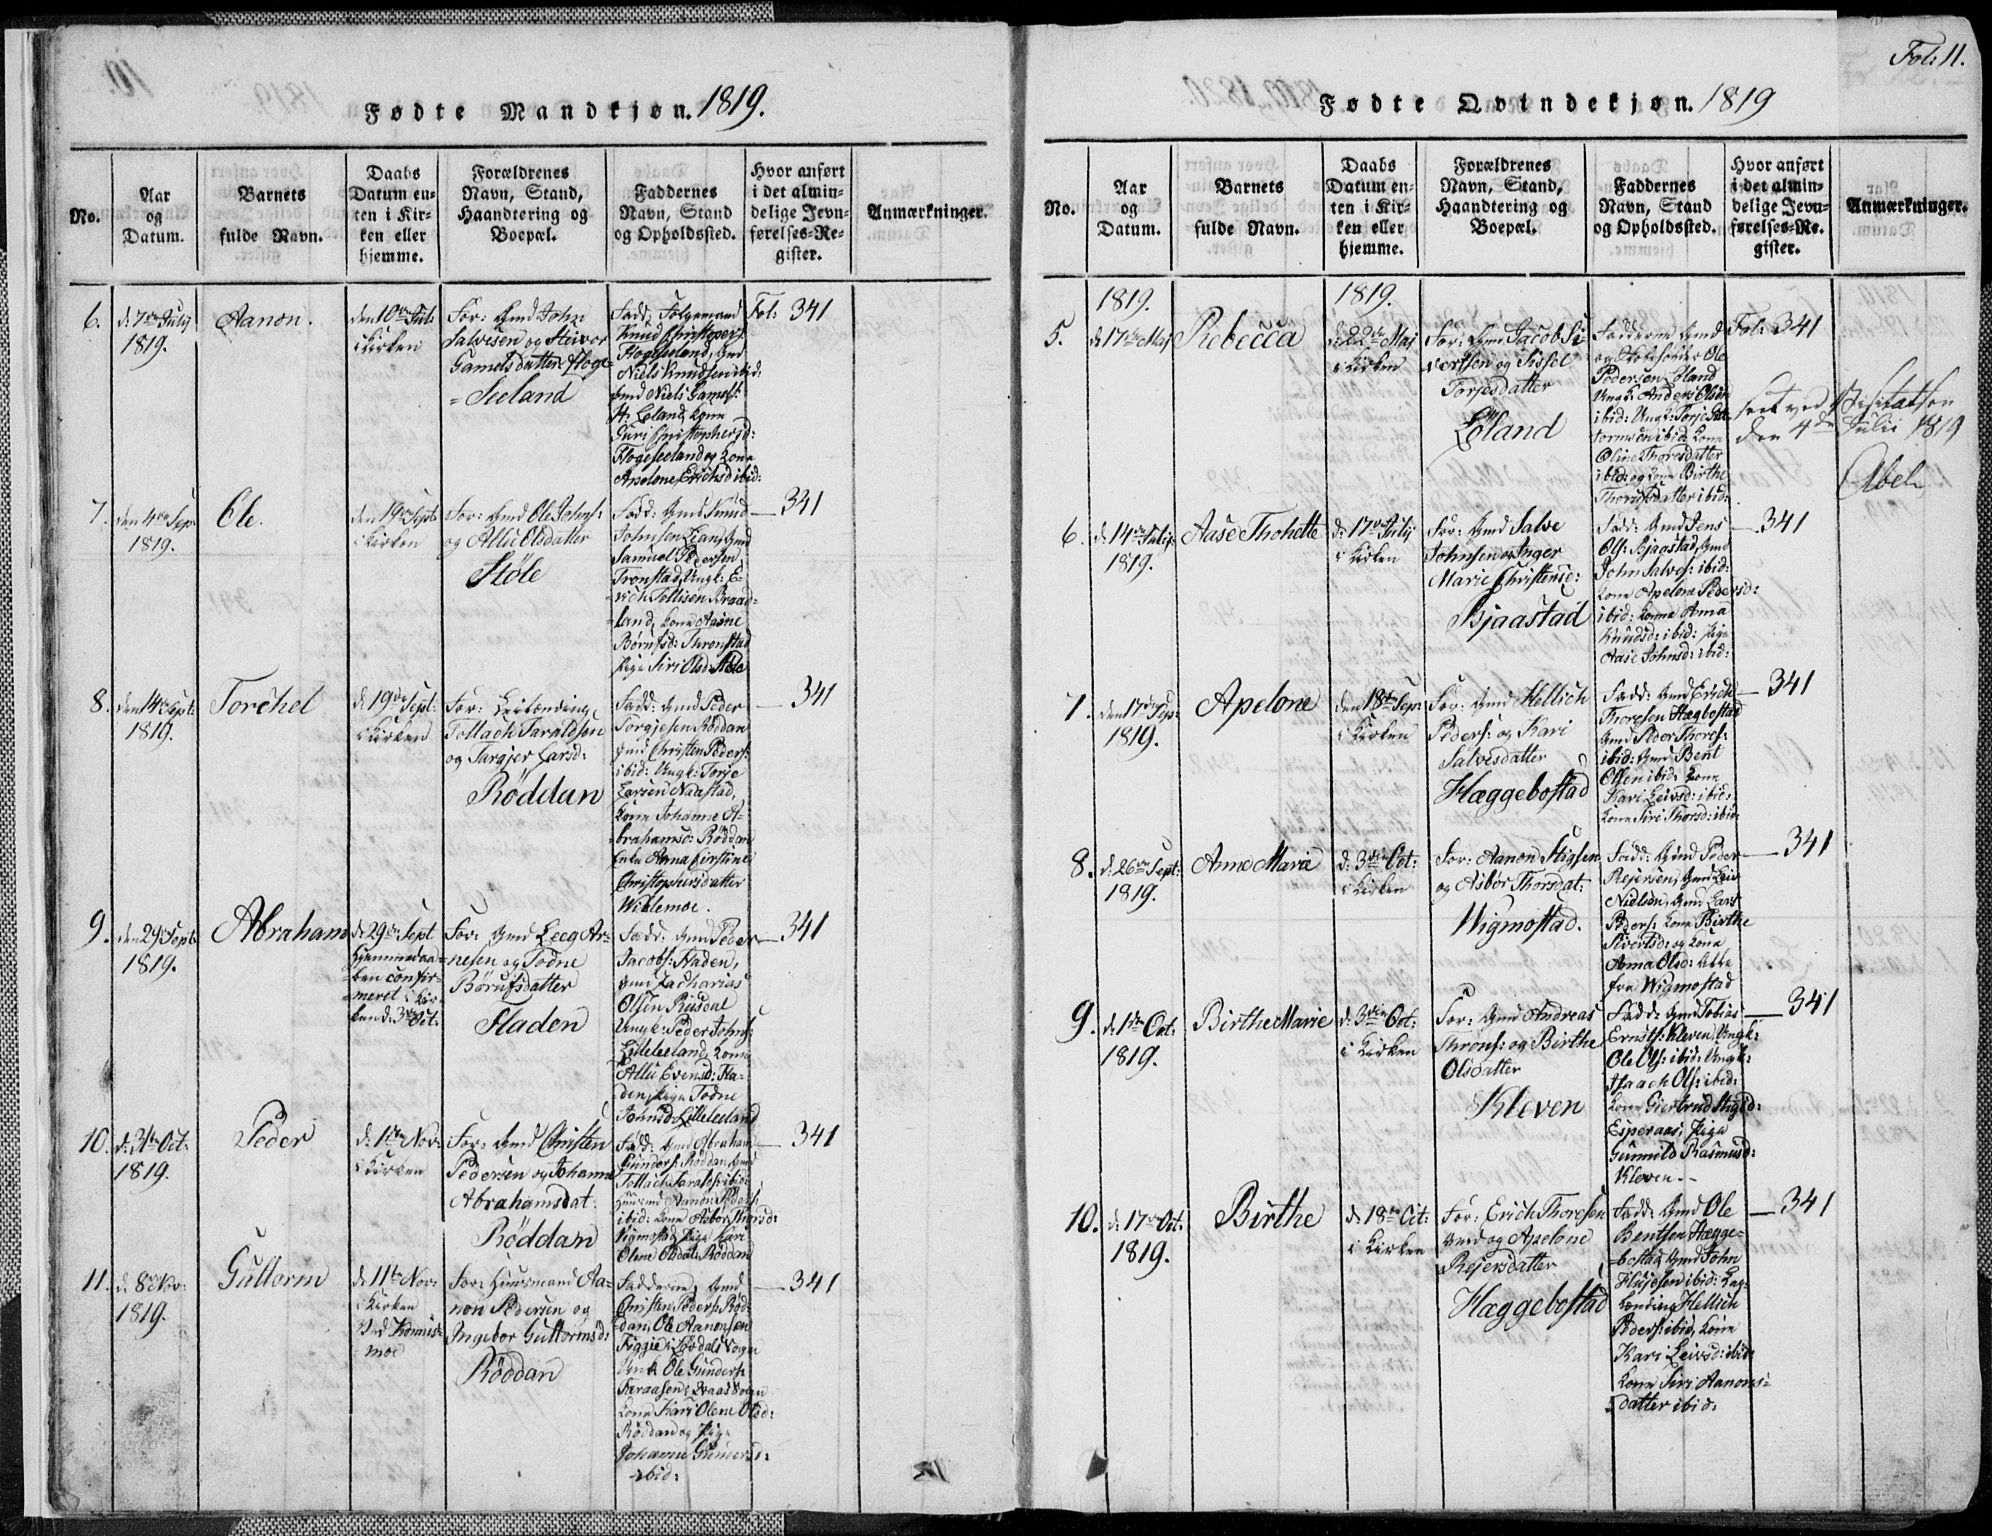 Fødte Mandkjøn. 1819.
No.
Aar
og
Datum.
Barnets
fulde Navn.
Daabs
Datum en-
ten i Kir-
ken eller
hjemme.
Forældrenes
Navn, Stand,
Haandtering og
Boepæl.
Faddernes
Navn, Stand
og Opholdssted.
Hvor anført
i det almin-
delige Jevn-
førelses-Re-
gister.
Anmærkninger.
6.
d: 7de July
1819.
Aanon.
den 10de Jul:
i Kirken
For: Gmd John
Salvesen og Steivor
Gamelsdatter Hoge-
=Seeland
Fadd:
Knud Christophers:
Hogseeland, Gmd
Niels Knudsen ibid:
Gmd Niels Gamels:
H: Leland, Kone
Guri Christophersd:
Hogeseeland og Kone
Apelone Erichsd ibid:
Fol: 341
7.
den 4de Sep:
1819.
Ole.
den 19de Sept
i Kirken
For: Gmd Ole Johns:
og Alli Olsdatter
Støle
Fadd: Gmd Knud
Johnsen Lian, Gmd
Samuel Pedersen
Tronstad, Ungk: E-
rich Tollisen Braad-
land, Kone Aasne
Børufsd: Thronstad
Pige Siri Olsd: Støle
341
8.
den 14de Sept:
1819.
Torchel
d: 19de Sept:
i Kirken
For: Leilending
Tollach Taraldsen
og Targjer Larsd:
Röddan
Fadd: Gmd Peder
Torgjesen Röddan
Gmd Christen Peders:
ibid: Ungk: Torje
Larsen Naastad,
Kone Johanne A-
=brahamsd: Röddan
Enke Anna Kirstine
Christophersdatter
Wiblemoe.
341
9.
den 29de Sept:
1819.
Abraham
d: 29de Sept
hjemmedaa-
=ben confir-
=meret i Kir-
ken d: 3de Oct:
For: Gmd Leeg Ar-
nesen og Todne
Børufsdatter
Fladen
Fadd: Gmd Peder
Jacobs: Fladen,
Gmd Zacharias
Olsen Risdal
Ungk: Peder Johns:
Lilleleeland, Kone
Alli Evensd: Fla-
den, Pige Todne
Johnsd: Lilleleeland
341
10.
d: 31te Oct:
1819.
Peder
d: 17de Nov:
i Kirken
For: Gmd Christen
Pedersen og Johanna
Abrahamsdat:
Röddan
Fadd: Gmd Abraham
Gunders: Röddan, Gmd
Tollach Taralds: ibid:
Huusmd Aanon Peders:
ibid: Kone Asbor Thorsd:
Vigmostad, Pige Kari
Olene Olsdat: Röddan
341
11.
d: 8de Nov:
1819.
Guttorm
den 11te Nov:
i Kirken
ved Konnis-
moe
For: Huusmand Aa-
non Pedersen og
Ingebor Guttormsd:
Röddan
Fadderne, Gmd
Christen Peders: Röd-
dan, Ole Aanonsen
Ungk Ole Gunders:
Kone Kari Olene Olsd:
Röddan og Pige
Johanne Gundersd:
ibid:
341
Fol: 11.
Fødte Qvindekjøn. 1819
No.
Aar
og
Datum.
Barnets
fulde Navn.
Daabs
Datum en-
ten i Kir-
ken eller
hjemme.
Forældrenes
Navn, Stand,
Haandtering og
Boepæl.
Faddernes
Navn, Stand
og Opholdssted.
Hvor anført
i det almin-
delige Jevn-
førelses-Re-
gister.
Anmærkninger.
5.
1819.
d: 17de Maj
Rebecca
1819.
d: 22de Maj
i Kirken
For: Gmd Jacob Si-
vertsen og Sissel
Torjesdatter
Løland
Fadderne Gmd
Pedersen Løland
Ungk: Anders Olsen
ibid: Ungk: Torje Gut-
tormsen ibid: Kone
Oline Thoresdatter
ibid: og Kone Birthe
Thoresdatter ibid:
Fol: 341
seet ved Visitatsen
den 4de Julii 1819
Abel
6.
d: 14de Julij
1819.
Aase Tholette
d: 17de Julij
i Kirken
For: Gmd Salve
Johnsen og Inger
Marie Christensd:
Bjaastad
Fadd: Gmd Jens
Ols: Bjaastad, Gmd
John Salves: ibid:
Kone Apelone Pedersd:
ibid: Kone Anna
Knudsd: ibid: Pige
Aase Johnsd: ibid:
341
7.
den 17de Sep:
1819.
Apelone
den 18de Sep:
i Kirken
For: Gmd Hellich
Peders: og Kari
Salvesdatter
Hæggebostad
Fadd: Gmd Erich
Thoresen Hægbostad
Gmd Peder Thores:
ibid: Gmd Bent
Olsen ibid: Kone
Kari Leivsd: ibid:
Kone Siri Thorsd: ibid:
341
8.
d: 26de Sept:
1819.
Anne Marie
d: 3die Oct:
i Kirken
For: Aanon Stigsen
og Asbor Thorsdat:
Wigmostad.
Fadd: Gmd Peder
Rejersen, Gmd Leiv
Nielsen, Gmd Lars
Peders: Kone Birthe
Sivertsd: og Kone
Anna Olsd: Alle
fra Wigmostad
341
9.
d: 1ste Oct:
1819.
Birthe Marie
d: 3die Oct:
i Kirken
For: Gmd Andreas
Throns: og Birthe
Olsdatter
Kleven
Fadd: Gmd Tobias
Ernsts: Kleven, Ungk:
Ole Ols: ibid: Ungk:
Isaach Ols: ibid:
Kone Giertrud Stigsd:
Esperaas, Pige
Gunnild Rasmusd:
Kleven.-
341
10.
d: 17de Oct:
1819.
Birthe
d: 18de Oct:
i Kirken
For: Erich Thoresen
Gmd og Apelone
Rejersdatter
Hæggebostad
Fadd: Gmd Ole
Bentsen Hægge-
=bostad, Gmd John
ibid:
Hellich
Peders: ibid, Kone
Kari Leivsd: ibid:
Kone Siri Aanons-
datter ibid:
341